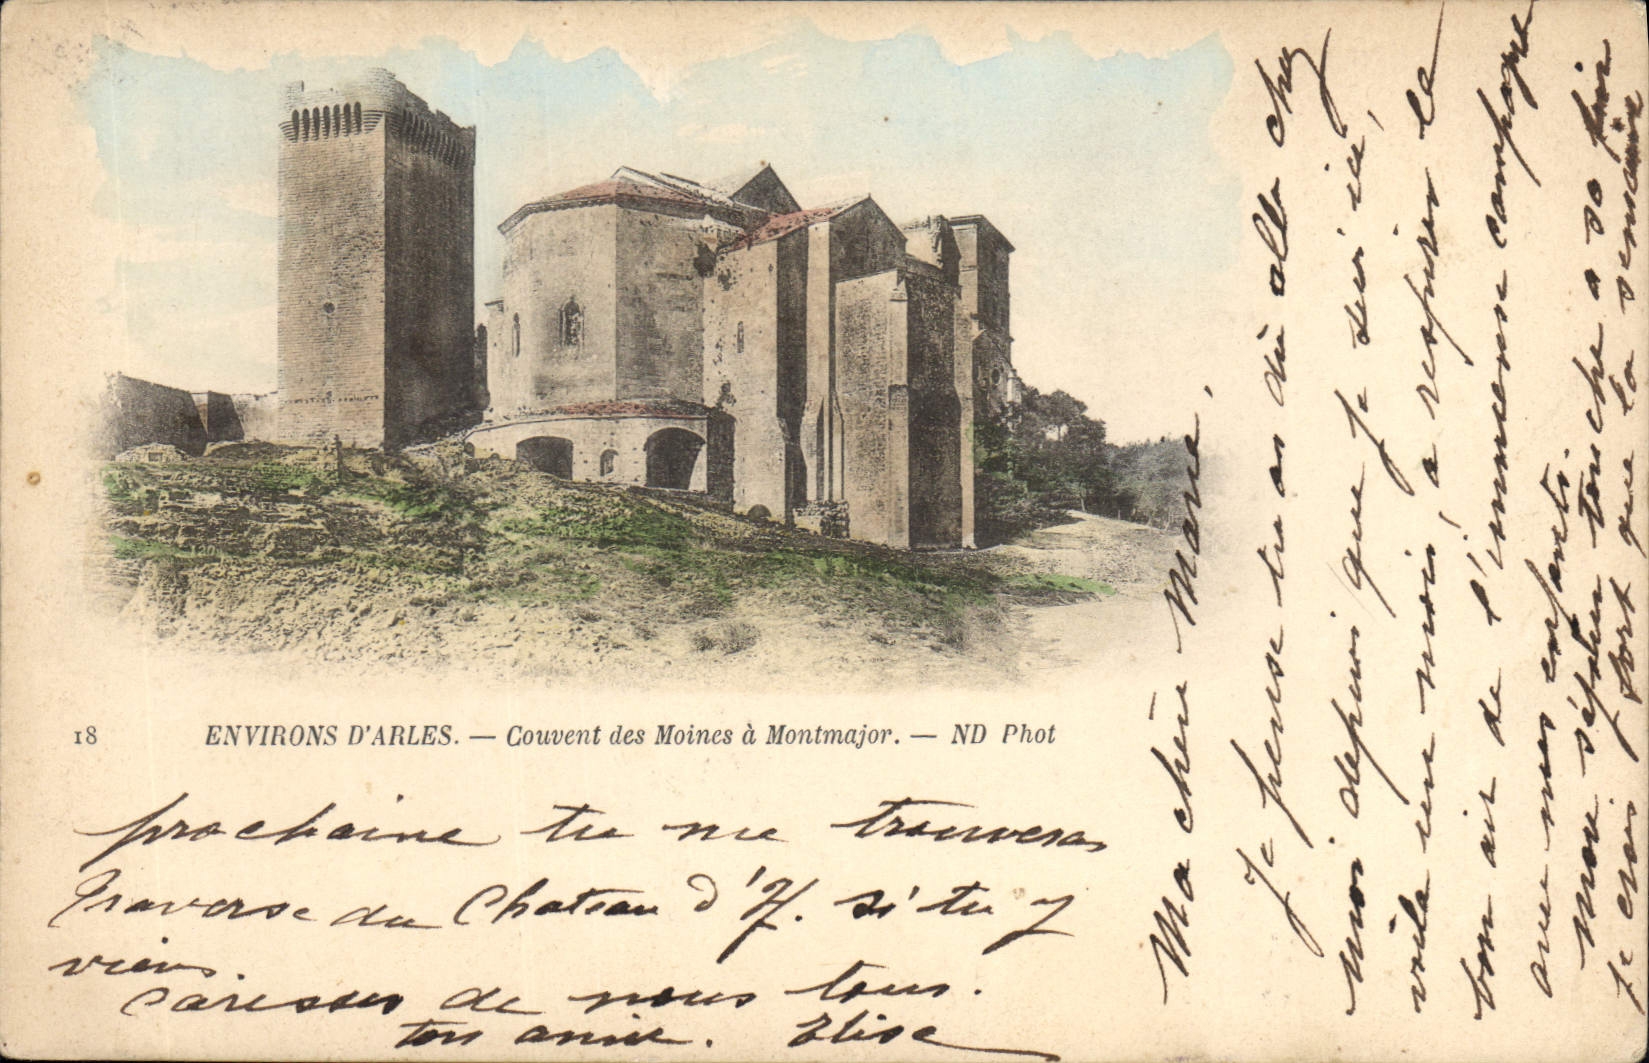 18 ENVIRONS D'ARLES. — Couvent des Moines à Montmajor. — ND Phot
Ma chère Marie,
Je pense tu as dû allé chez
moi depuis que je suis ici,
voila un mois, a respirer le
bon air de l'immense campagne
avec mes enfants.
Mon séjour touche a sa fin
je crois fort que la semaine
prochaine tu me trouveras
Traverse du Chateau d'If. si tu y
viens.
Caresses de nous tous.
ton amie. Elise